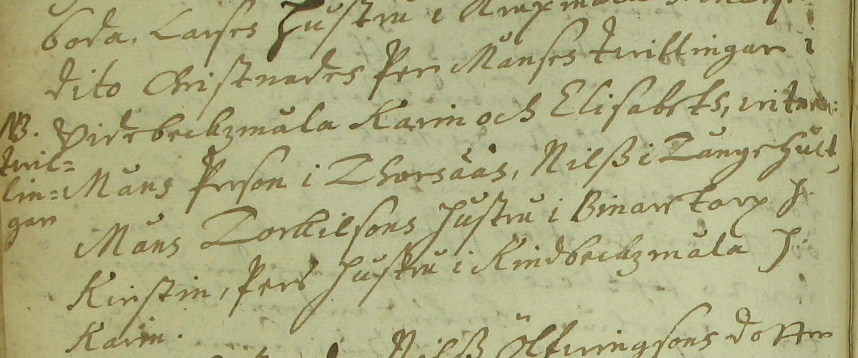 boda, Larses Hustru i
dito Christnades Pers Månses tvillingar i
NB. Videbeckzmåla Karin och Elisabets, vitnen:
tvil=
lin= Måns Person i Thorsåås, Nilß i Långehult,
gar
Måns Torkilsons hustru i Binaretorp H.
Kirstin, Pers hustru i Kindbeckzmåla H.
Karin.
Nilß dotter